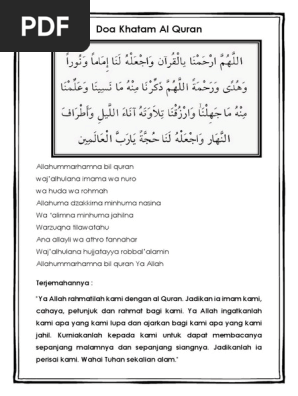 PDF
Doa Khatam Al Quran
اللَّهُمَّ ارْحَمْنَا بِالْقُرْآنِ وَاجْعَلْهُ لَنَا إِمَامًا وَنُورًا
وَهُدًى وَرَحْمَةً اللَّهُمَّ ذَكِّرْنَا مِنْهُ مَا نَسِينَا وَعَلِّمْنَا
مِنْهُ مَا جَهِلْنَا وَارْزُقْنَا تِلَاوَتَهُ آنَاءَ اللَّيْلِ وَأَطْرَافَ
النَّهَارِ وَاجْعَلْهُ لَنَا حُجَّةً يَارَبَّ الْعَالَمِينَ
Allahummarhamna bil quran
waj'alhulana imama wa nuro
wa huda wa rohmah
Allahuma dzakkirna minhuma nasina
Wa 'alimna minhuma jahilna
Warzuqna tilawatahu
Ana allayli wa athro fannahar
Waj'alhulana hujjatayya robbal'alamin
Allahummarhamna bil quran Ya Allah
Terjemahannya :
'Ya Allah rahmatilah kami dengan al Quran. Jadikan ia imam kami,
cahaya, petunjuk dan rahmat bagi kami. Ya Allah ingatkanlah
kami apa yang kami lupa dan ajarkan bagi kami apa yang kami
jahil. Kurniakanlah kepada kami untuk dapat membacanya
sepanjang malamnya dan sepanjang siangnya. Jadikanlah ia
perisai kami. Wahai Tuhan sekalian alam.'